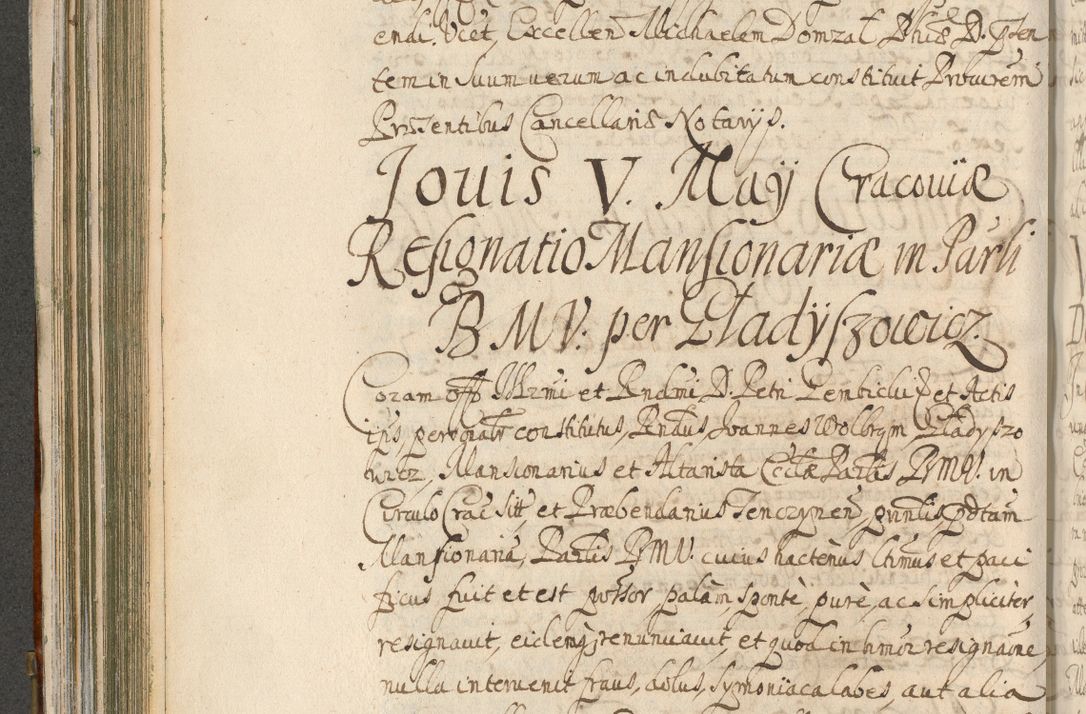 endi. Ucet, Excellen Michaelem Domzał Phiæ D. pten
tem in Suum uerum ac indubitatum constituit Procurem
Præsentibus Cancellariæ Notarijs.
Jouis V. Maÿ Cracouiæ
Resignatio Mansionariæ in Parli
B M V. per Zładyszowicz.
Coram Offo Illrmi et Rndmi D. Petri Gembicki Ept et Actis
ipis, persoalr constitutus, Rndus, Joannes Wolbrom Zładyszo
wicz, Mansionarius et Altarista Ecclæ Parlis BMV. in
Circulo Crac Sitt, et Præbendarius Tenczynen, pnntis pdtam
Mansionaria, Parlis BMV. cuius hactenus ltimus et paci
ficus fuit et est possor, palam sponte, pure, ac simpliciter,
resignauit, eidemq; renunciauit, et quod in hmoi resignaone,
nulla interuenit fraus, dolus, Symoniaca labes, aut alia